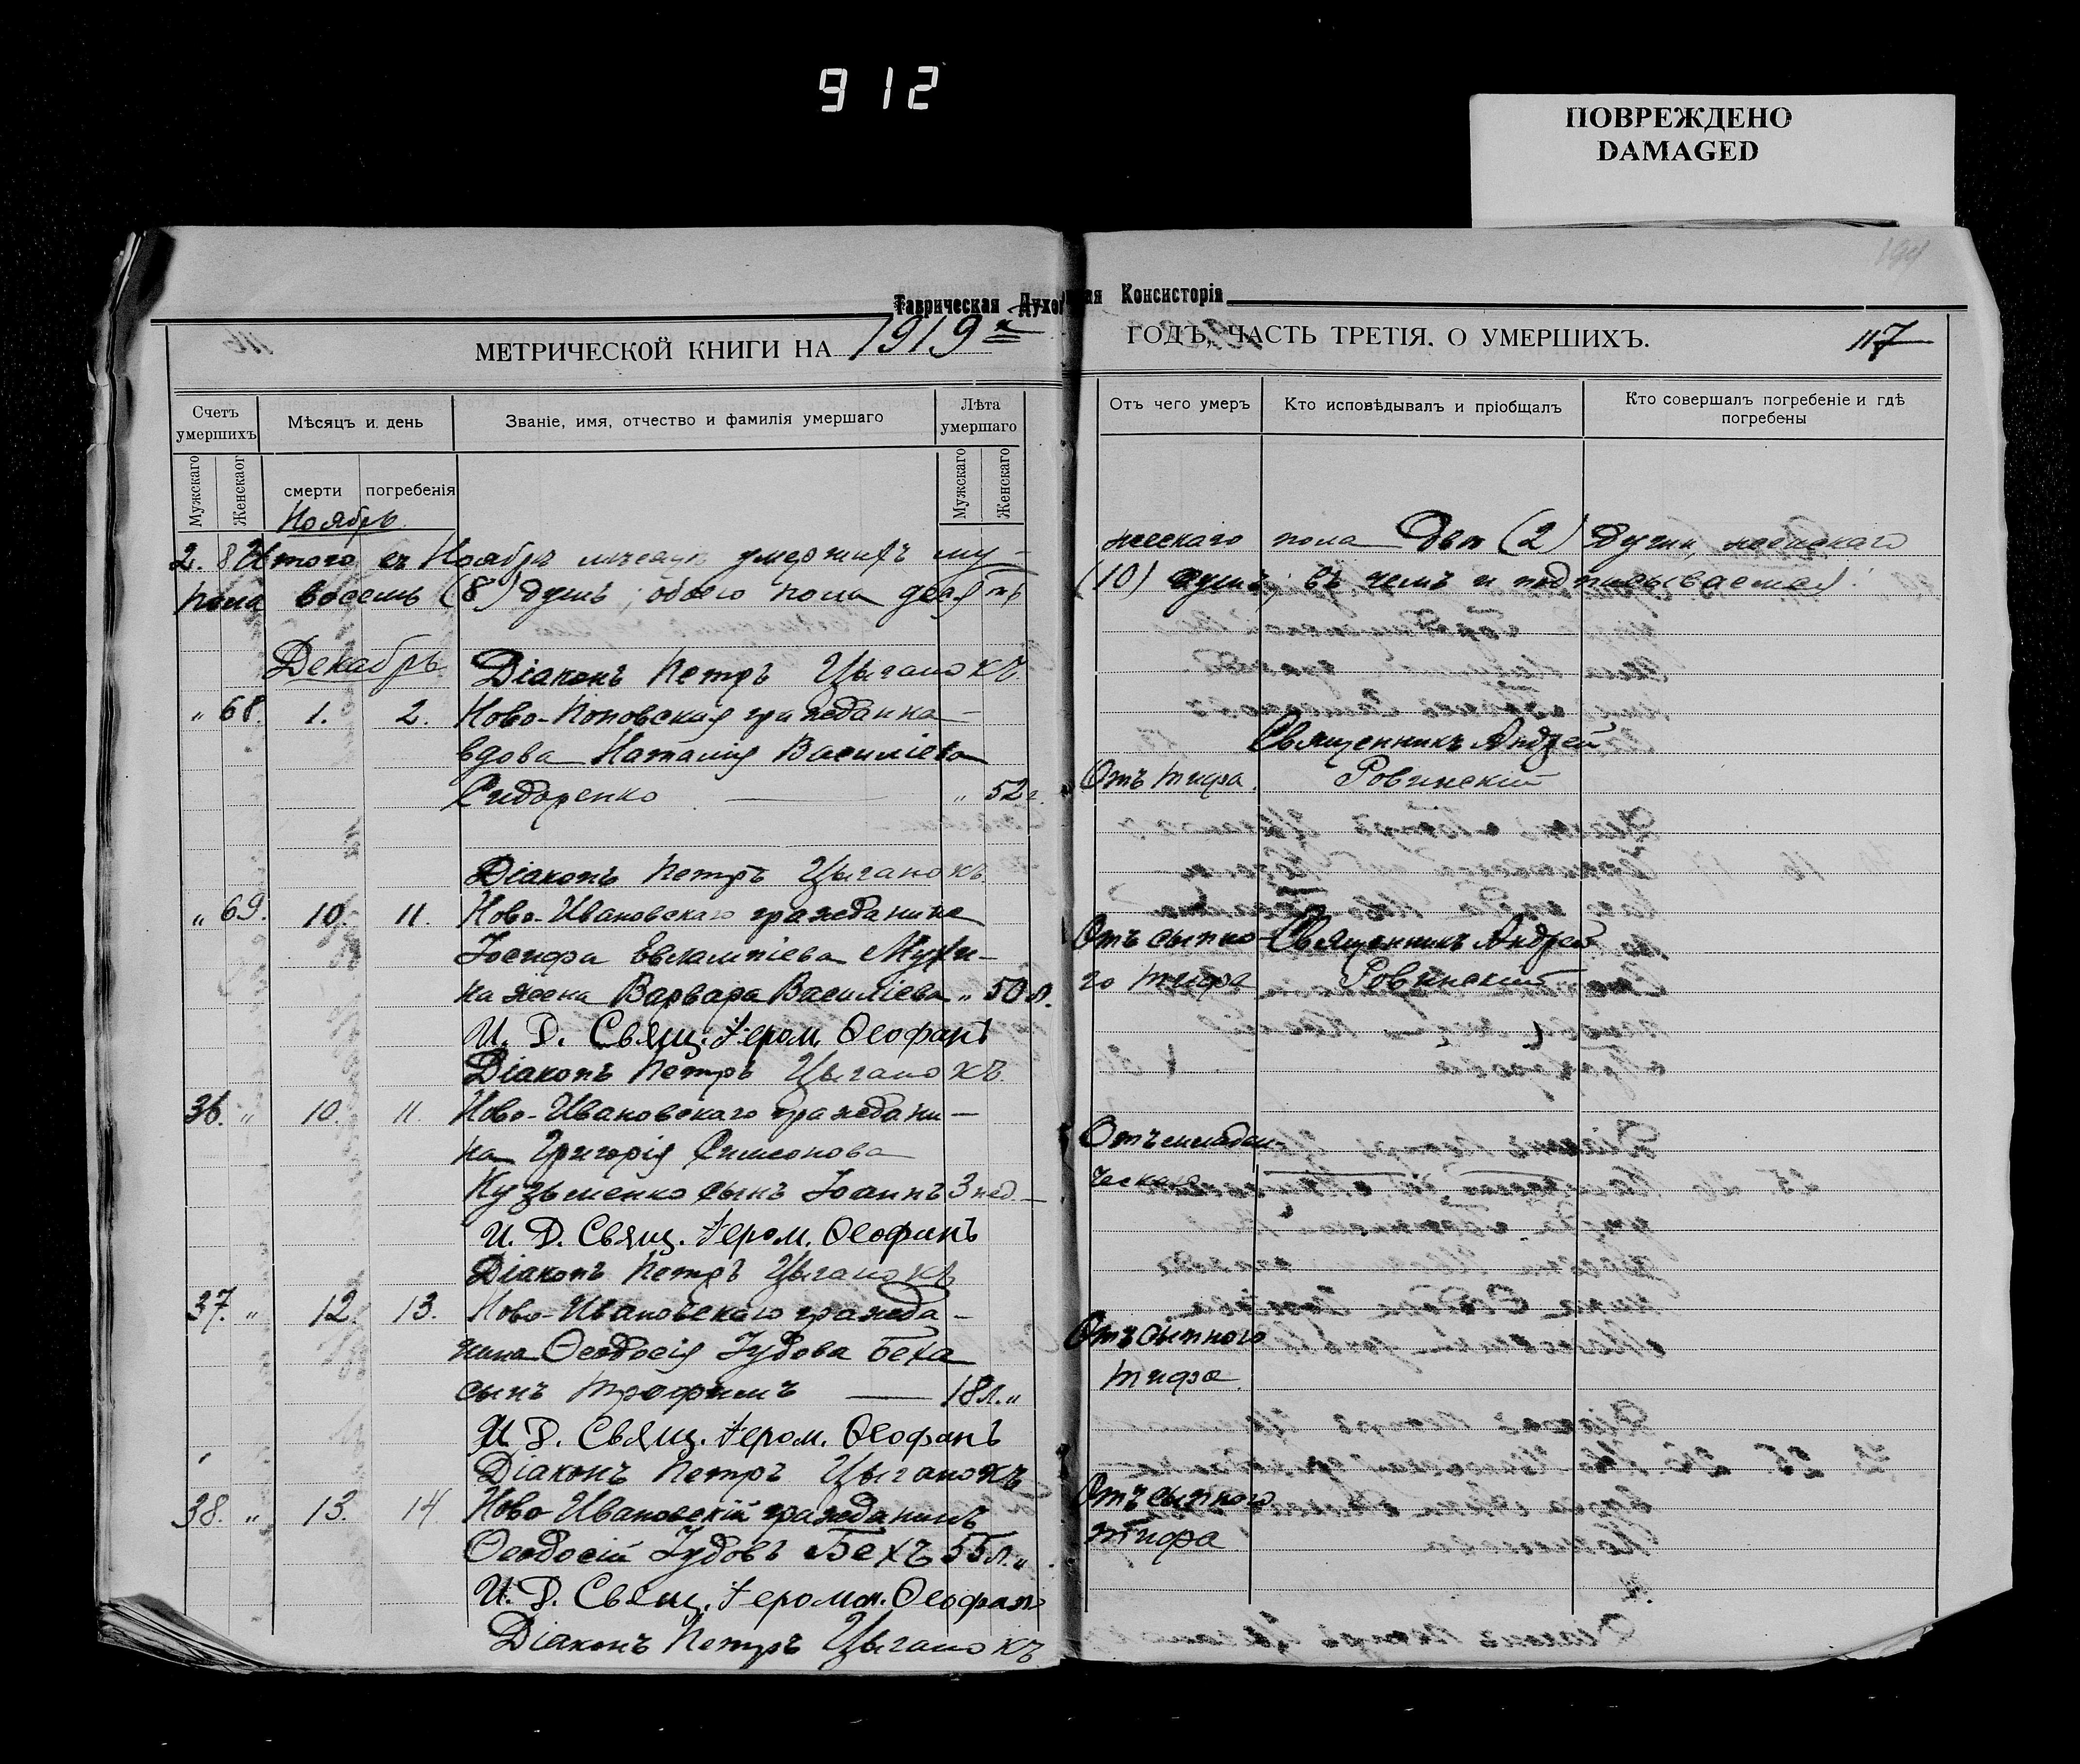 912
ПОВРЕЖДЕНО
DAMAGED
Таврическая Духовная Консисторія
МЕТРИЧЕСКОЙ КНИГИ НА 1919 ГОДЪ, ЧАСТЬ ТРЕТІЯ. О УМЕРШИХЪ. 117
Счетъ умершихъ
Мѣсяцъ и день
Званіе, имя, отчество и фамилія умершаго
Лѣта умершаго
Отъ чего умеръ
Кто исповѣдывалъ и пріобщалъ
Кто совершалъ погребеніе и гдѣ погребены
Мужскаго
Женскаог
смерти
погребенія
Мужскаго
Женскаго
Ноябрь
2. 8 Итого въ Ноябрѣ мѣсяцѣ умершихъ му-
жескаго пола двѣ (2) души, женскаго
пола восемь (8) душъ, обоего пола десять
(10) душъ; въ чемъ и подписываемся:
Декабрь Діаконъ Петръ Цыганокъ
" 68. 1. 2. Ново-Поповская гражданка
вдова Наталія Василіева
Сидоренко " 52 г. Отъ тифа. Священникъ Андрей
Ровинскій
Діаконъ Петръ Цыганокъ
" 69. 10. 11. Ново-Ивановскаго гражданина
Іосифа Евлампіева Мухи-
на жена Варвара Василіева " 50 л. Отъ сыпно-
го тифа Священникъ Андрей
Ровинскій
И. Д. Свящ. Іером. Ѳеофанъ
Діаконъ Петръ Цыганокъ
36. " 10. 11. Ново-Ивановскаго граждани-
на Григорія Симеонова
Кузьменко сынъ Іоаннъ 3 нед. Отъ младен-
ческой
И. Д. Свящ. Іером. Ѳеофанъ
Діаконъ Петръ Цыганокъ
37. " 12 13. Ново-Ивановскаго гражда-
нина Ѳеодосія Іудова Беха
сынъ Трофимъ 18 л. " Отъ сыпного
тифа.
И. Д. Свящ. Іером. Ѳеофанъ
Діаконъ Петръ Цыганокъ
38. " 13. 14. Ново Ивановскій гражданинъ
Ѳеодосій Іудовъ Бехъ 55 л. " Отъ сыпного
тифа
И. Д. Свящ. Іером. Ѳеофанъ
Діаконъ Петръ Цыганокъ